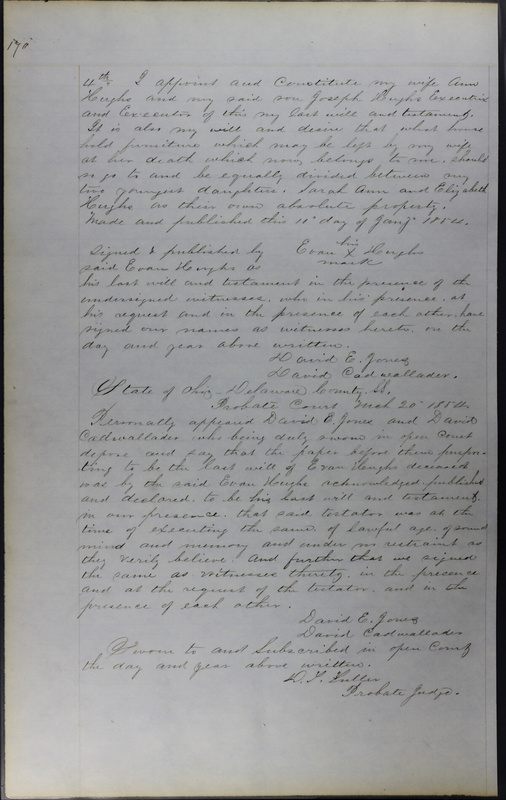 170
4th I appoint and Constitute my wife Ann
Hughs and my said son Joseph Hughs Executrix
and Executor of this my last will and testament.
It is also my will and desire that what house
hold furniture which may be left by my wife
at her death which now belongs to me should
so go to and be equally divided between my
two youngest daughters. Sarah Ann and Elizabeth
Hughs as their own absolute property.
Made and published this 11th day of Jany 1854.
his
Signed & published by Evan X Hughs
mark
said Evan Hughs as
his last will and testament in the presence of the
undersigned witnesses. who in his presence. at
his request and in the presence of each other, have
signed our names as witnesses hereto on the
day and year above written.
David E. Jones
David Cadwallader.
State of Ohio Delaware County, SS.
Probate Court Mch 20th 1854.
Personally appeared David E. Jones and David
Cadwallader who being duly sworn in open Court
depose and say that the paper before them purpor-
ting to be the last will of Evan Hughs deceased
was by the said Evan Hughs acknowledged, published
and declared to be his last will and testament,
in our presence. that said testator was at the
time of executing the same of lawful age, of sound
mind and memory and under no restraint as
they verily believe. And further that we signed
the same as witnesses thereto, in the presence
and at the request of the testator. and in the
presence of each other.
David E. Jones
David Cadwallader
Sworn to and Subscribed in open Court
the day and year above written.
D. T. Fuller
Probate Judge.